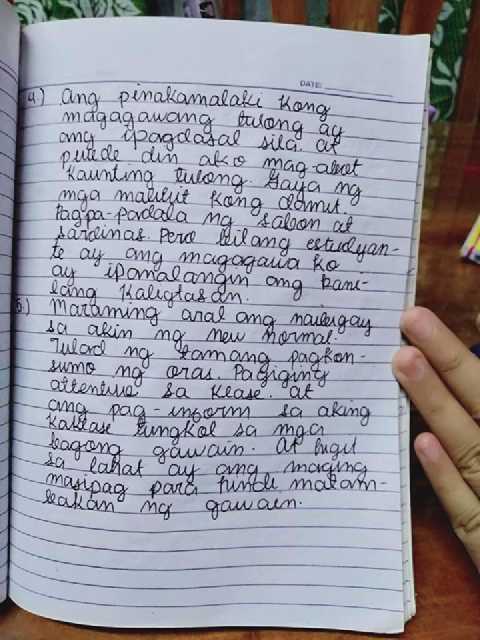 DATE:
4.) Ang pinakamalaki kong
magagawang tulong ay
ang ipagdasal sila. at
puede din ako mag-abot
kaunting tulong. Gaya ng
mga maliliit kong damit.
Pagpa-padala ng sabon at
sardinas. Pero bilang estudyan-
te ay ang magagawa ko
ay ipamalangin ang kani-
lang kaligtasan.
5.) Maraming aral ang naibigay
sa akin ng new normal.
Tulad ng tamang pagkon-
sumo ng oras. Pagiging
attentive sa klase. at
ang pag-inform sa aking
kaklase tungkol sa mga
bagong gawain. At higit
sa lahat ay ang maging
masipag para hindi matam-
bakan ng gawain.